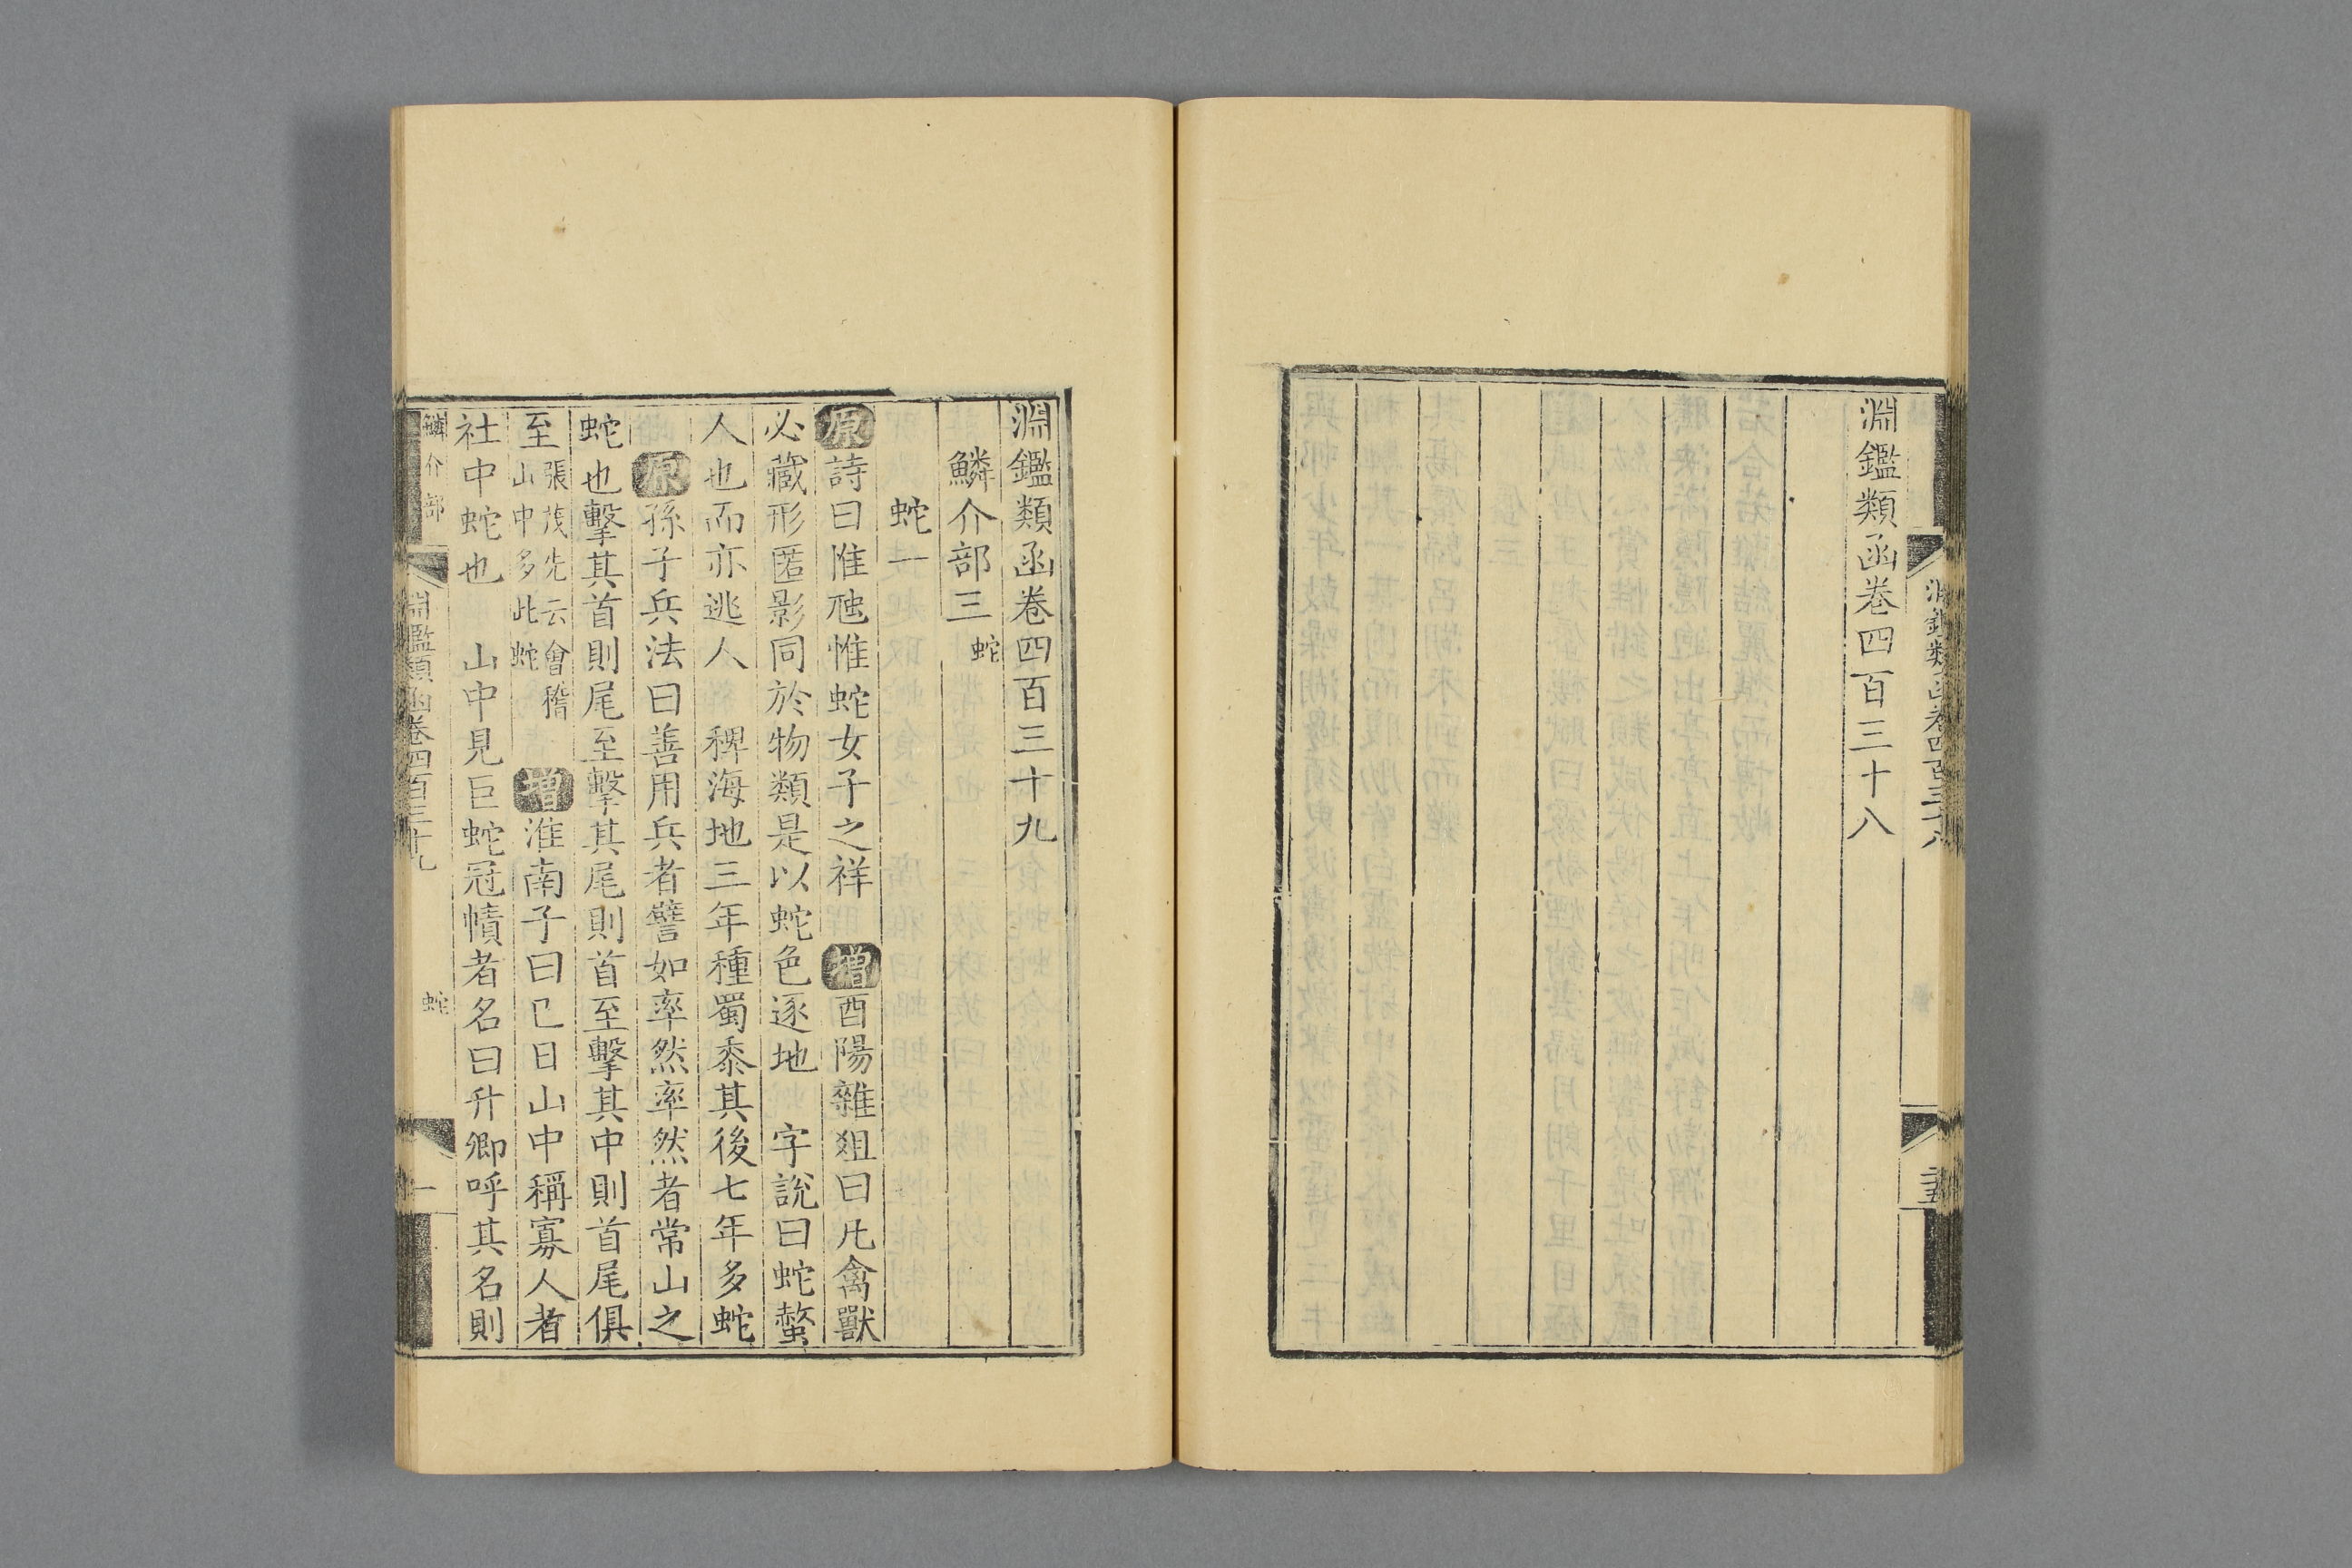 淵鑑類函卷四百三十八
淵鑑類函卷四百三十九
鱗介部三 蛇
蛇一
原詩曰惟虺惟蛇女子之祥 增酉陽雜俎曰凡禽獸
必藏形匿影同於物類是以蛇色逐地 字說曰蛇螫
人也而亦逃人 稗海地三年種蜀黍其後七年多蛇
原孫子兵法曰善用兵者譬如率然率然者常山之
蛇也擊其首則尾至擊其尾則首至擊其中則首尾俱
至張茂先云會稽山中多此蛇 增淮南子曰巳日山中稱寡人者
社中蛇也 山中見巨蛇冠幘者名曰升卿呼其名則
鱗介部
淵鑑類函卷四百三十九
蛇
一